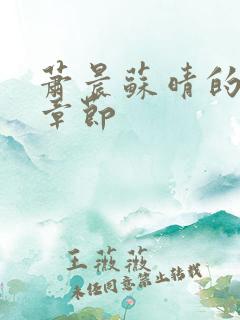 萧晨苏晴的
章节
王薇薇
未经同意禁止转载